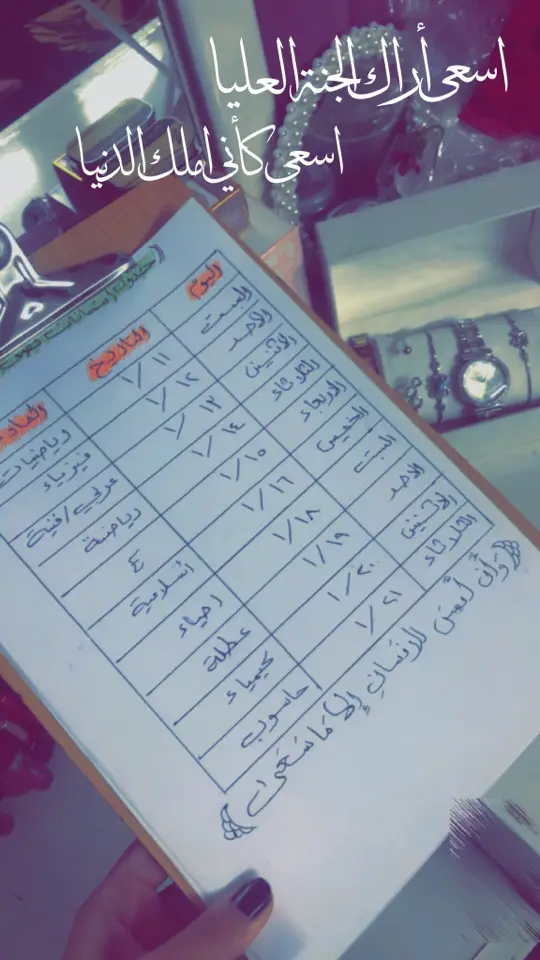 اسعى أراك الجنة العليا
اسعى كأني املك الدنيا
جدول امتحانات
اليوم التاريخ
السبت ١/١١ رياضيات
الاحد ١/١٢ فيزياء
الاثنين ١/١٣ عربي/فنية
الثلاثاء ١/١٤ رياضة
الاربعاء ١/١٥ E
الخميس ١/١٦ اسلامية
السبت ١/١٨ احياء
الاحد ١/١٩ عطلة
الاثنين ١/٢٠ كيمياء
الثلاثاء ١/٢١ حاسوب
وَأَن لَّيْسَ لِلإِنسَانِ إِلَّا مَا سَعَى